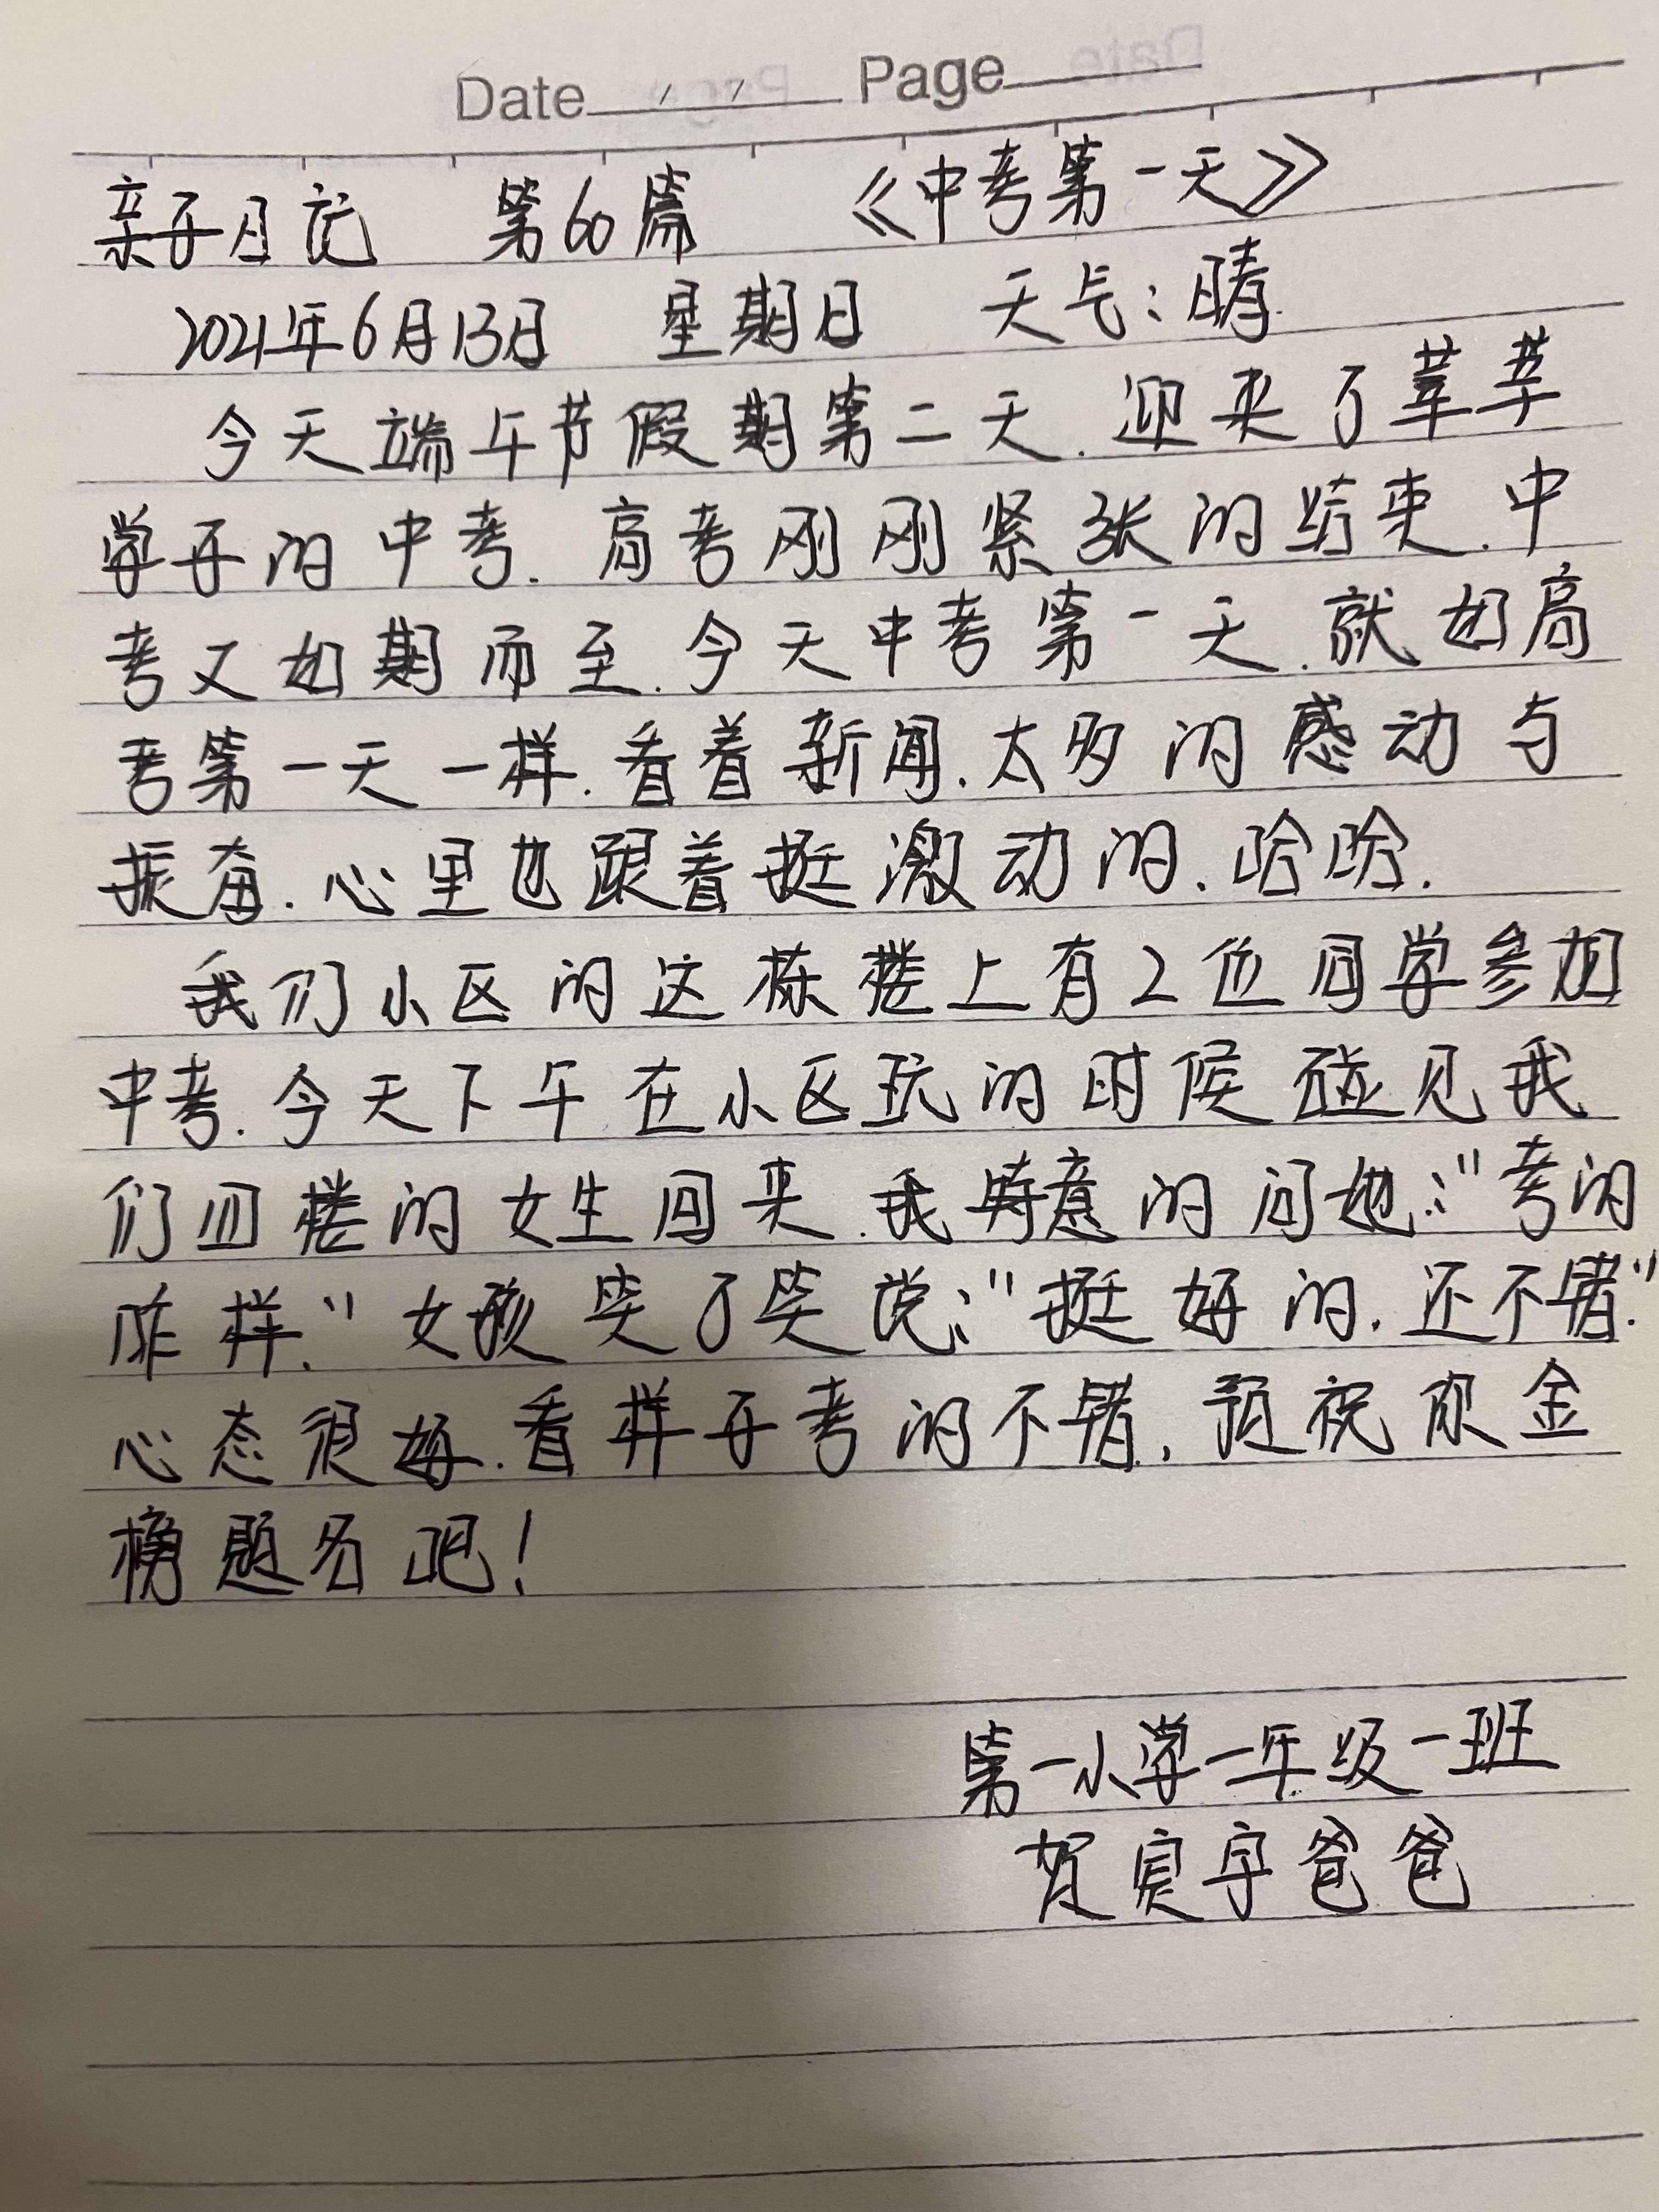 Date / / Page
亲子日记 第60篇 《中考第一天》
2021年6月13日 星期日 天气:晴
今天端午节假期第二天.迎来了莘莘
学子的中考.高考刚刚紧张的结束.中
考又如期而至.今天中考第一天.就如高
考第一天一样.看着新闻.太多的感动与
振奋.心里也跟着挺激动的.哈哈.
我们小区的这栋楼上有2位同学参加
中考.今天下午在小区玩的时候碰见我
们四楼的女生回来.我特意的问她:"考的
咋样."女孩笑了笑说:"挺好的.还不错."
心态很好.看样子考的不错.预祝你金
榜题名吧!
第一小学一年级一班
贺宾宇爸爸